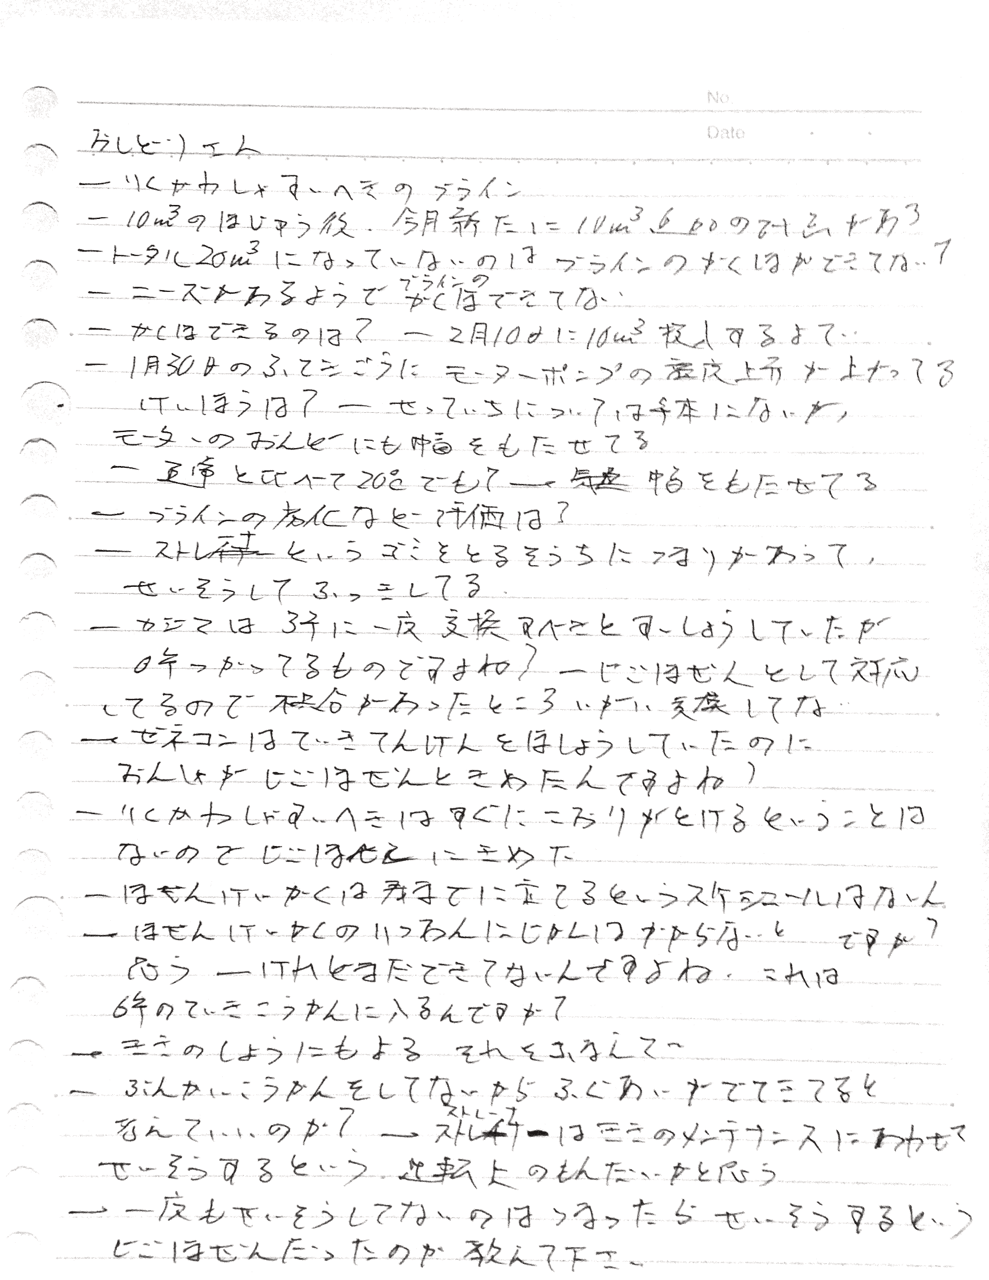 No.
Date
おしどりさん
ー りくがわしゃすいへきのブライン
ー 10m³のほじゅう後、今月新たに10m³追加の計画がある
ー トータル20m³になっていないのはブラインのかくほができてない？
ー ニーズがあるようでブラインのかくほできてない
ー かくほできるのは？ ー 2月10日に10m³投入するよてい
ー 1月30日のふてきごうにモーターポンプの温度上昇が上がってる
けいほうは？ ー せっていちについては手本にないが、
モーターのおんどにも幅をもたせてる
ー 通常と比べて20℃でも？ ー 幅をもたせてる
ー ブラインの劣化など評価は？
ー ストレーナーというゴミをとるそうちにつまりがあって、
せいそうしてふっきしてる
ー カジマでは3年に一度交換すべきとすいしょうしていたが
6年つかってるものですよね？ ーじごほぜんとして対応
してるので不具合があったところいがい交換してない
ー ゼネコンはていきてんけんをほしょうしていたのに
おんしゃがじごほぜんときめたんですよね？
ー りくがわしゃすいへきはすぐにこおりがとけるということは
ないのでじごほぜんにきめた
ー ほぜんけいかくは春までに立てるというスケジュールはないん
ですか？
ー ほぜんけいかくのりつあんにじかんはかからないと
思う ーけれどまだできてないんですよね。これは
6年のていきこうかんに入るんですか？
ー ききのしようにもよる それをふまえて〜
ー ぶんかいこうかんをしてないからふぐあいがでてきてると
考えていいのか？ ー ストレーナーはききのメンテナンスにあわせて
せいそうするという 運転上のもんだいかと思う
ー 一度もせいそうしてないのはつまったらせいそうするという
じごほぜんだったのか教えて下さい